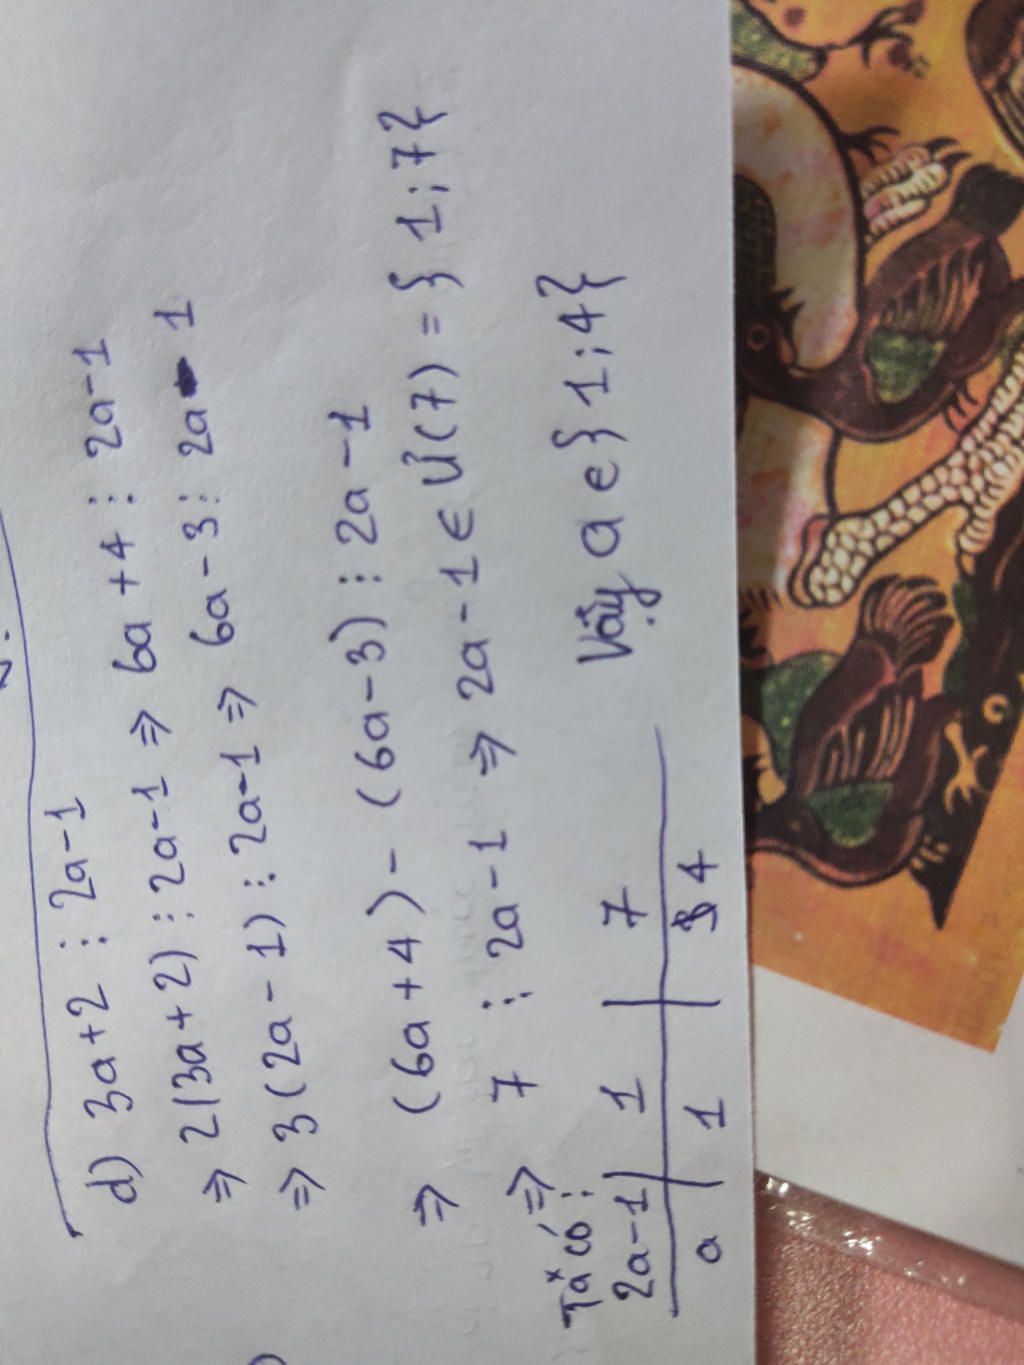 d) 3a+2 ⋮ 2a-1
⇒ 2(3a+2) ⋮ 2a-1 ⇒ 6a+4 ⋮ 2a-1
⇒ 3(2a-1) ⋮ 2a-1 ⇒ 6a-3 ⋮ 2a-1
⇒ (6a+4)-(6a-3) ⋮ 2a-1
⇒ 7 ⋮ 2a-1 ⇒ 2a-1 ∈ Ư(7) = {1;7}
Ta có:
2a-1 | 1 | 7
a | 1 | 4
Vậy a ∈ {1;4}